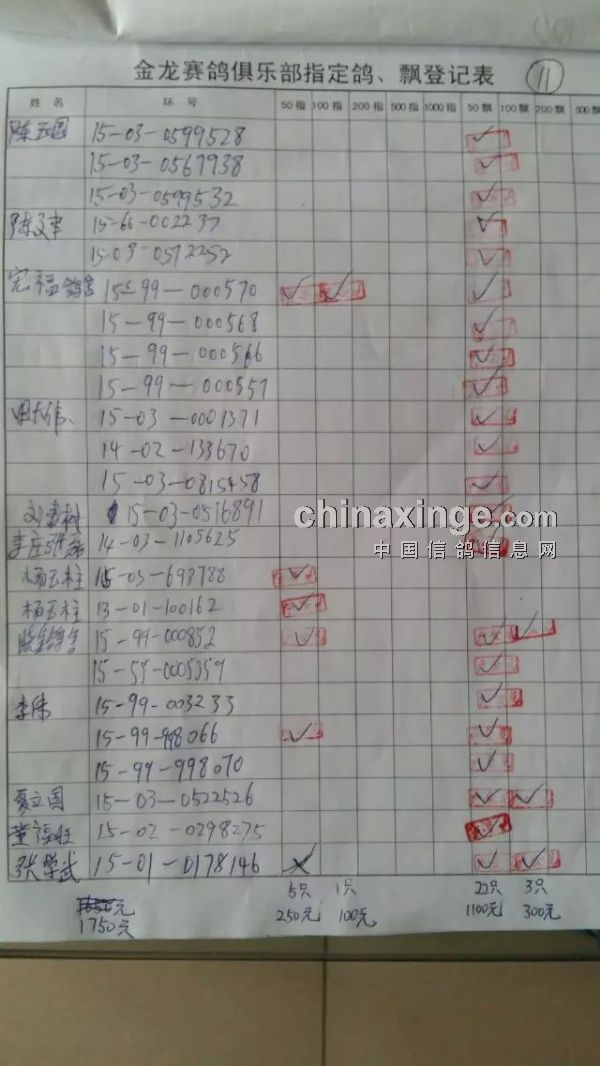 金龙赛鸽俱乐部指定鸽、飘登记表 11
姓名 环号 50指 100指 200指 500指 1000指 50飘 100飘 200飘 500飘
15-03-0599528 ✓
15-03-0567938 ✓
15-03-0599532 ✓
15-66-002237 ✓
15-03-0572252 ✓
宏福鸽舍 15-99-000570 ✓ ✓ ✓
15-99-000568 ✓
15-99-000566 ✓
15-99-000557 ✓
15-03-0001371 ✓
14-02-133670 ✓
15-03-0815458 ✓
15-03-0516891
14-03-1105625
杨玉柱 15-03-693788 ✓
杨玉柱 13-01-100162 ✓
15-99-000852 ✓ ✓ ✓
15-59-0005359 ✓
李伟 15-99-003233 ✓
15-99-998066 ✓ ✓
15-99-998070 ✓
夏立国 15-03-0522526 ✓ ✓
15-02-0298275 ✓
张学武 15-01-0178146 ✓ ✓
5只 1只 22只 3只
1750元 250元 100元 1100元 300元
chinaxinge.com
中国信鸽信息网